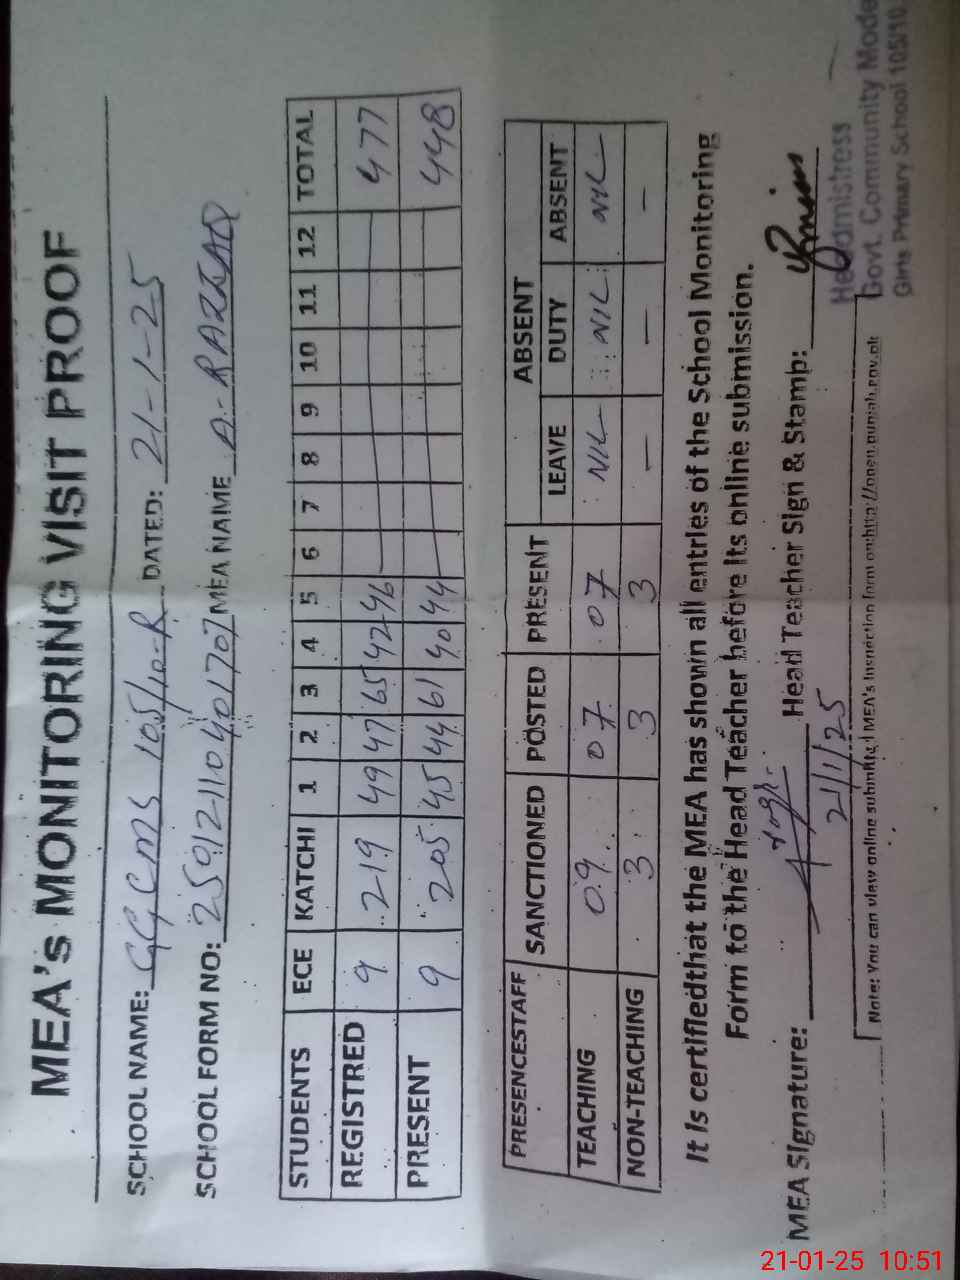 MEA's MONITORING VISIT PROOF
SCHOOL NAME: GGCMS 105/10-R DATED: 21-1-25
SCHOOL FORM NO: 25912110401707 MEA NAME A.-RAZZAQ
STUDENTS ECE KATCHI 1 2 3 4 5 6 7 8 9 10 11 12 TOTAL
REGISTRED 9 219 49 47 65 42 46 477
PRESENT 9 205 45 44 61 40 44 448
PRESENCESTAFF SANCTIONED POSTED PRESENT ABSENT
LEAVE DUTY ABSENT
TEACHING 09 07 07 NIL NIL NIL
NON-TEACHING 3 3 3 — — —
It Is certifiedthat the MEA has shown all entries of the School Monitoring
Form to the Head Teacher before its online submission.
MEA Signature: Head Teacher Sign & Stamp:
21/1/25
Headmistress
Govt. Community Mode
Girls Primary School 105/10.
Note: You can view online submitted MEA's Inspection form on:http://open.punjab.gov.pk
21-01-25 10:51